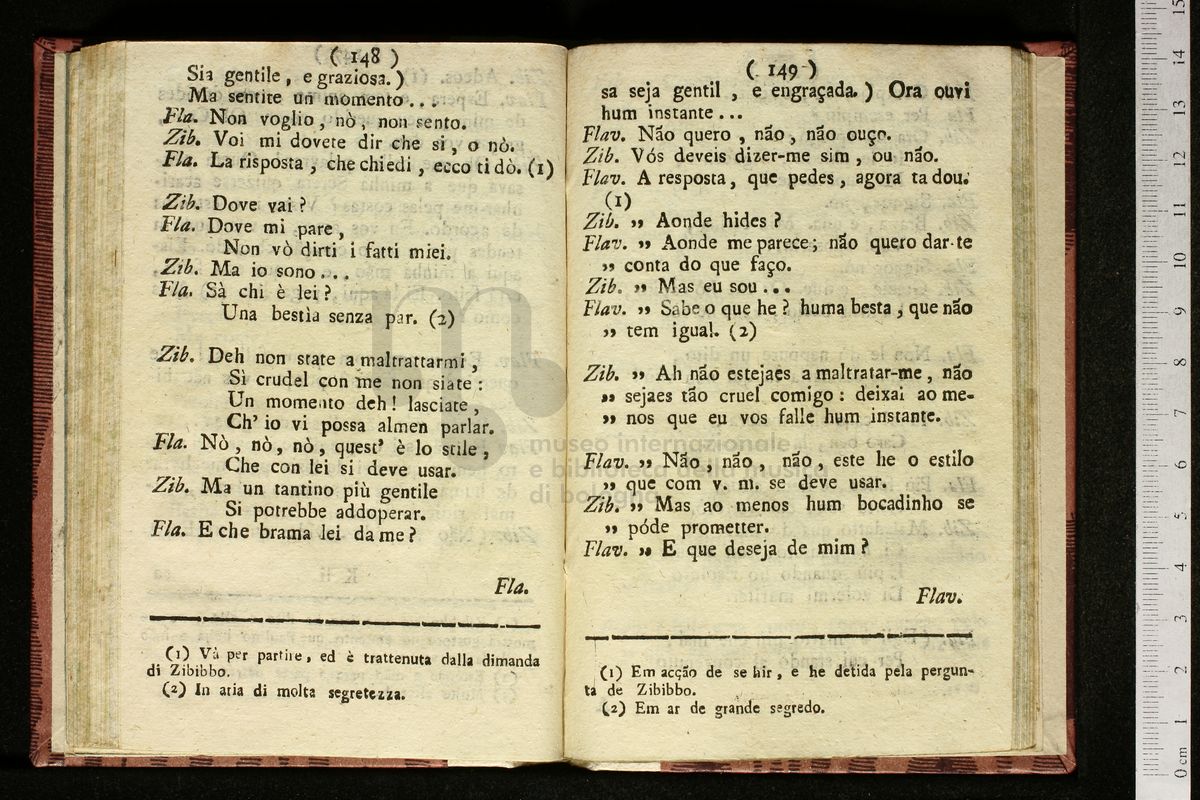 ( 148 )
Sia gentile , e graziosa. )
Ma sentite un momento . . .
Fla. Non voglio , nò , non sento.
Zib. Voi mi dovete dir che sì , o nò.
Fla. La risposta , che chiedi , ecco ti dò. (1)
Zib. Dove vai ?
Fla. Dove mi pare ,
Non vò dirti i fatti miei.
Zib. Ma io sono . . .
Fla. Sà chi è lei ?
Una bestia senza par. (2)
Zib. Deh non state a maltrattarmi ,
Sì crudel con me non siate :
Un momento deh ! lasciate ,
Ch' io vi possa almen parlar.
Fla. Nò , nò , nò , quest' è lo stile ,
Che con lei si deve usar.
Zib. Ma un tantino più gentile
Si potrebbe addoperar.
Fla. E che brama lei da me ?
Fla.
(1) Và per partire, ed è trattenuta dalla dimanda
di Zibibbo.
(2) In aria di molta segretezza.
( 149 )
sa seja gentil , e engraçada. ) Ora ouvi
hum instante . . .
Flav. Não quero , não , não ouço.
Zib. Vós deveis dizer-me sim , ou não.
Flav. A resposta, que pedes , agora ta dou.
(1)
Zib. ,, Aonde hides ?
Flav. ,, Aonde me parece ; não quero dar-te
,, conta do que faço.
Zib. ,, Mas eu sou . . .
Flav. ,, Sabe o que he ? huma besta , que não
,, tem igual. (2)
Zib. ,, Ah não estejaes a maltratar-me , não
,, sejaes tão cruel comigo : deixai ao me-
,, nos que eu vos falle hum instante.
Flav. ,, Não , não , não , este he o estilo
,, que com v. m. se deve usar.
Zib. ,, Mas ao menos hum bocadinho se
,, póde prometter.
Flav. ,, E que deseja de mim ?
Flav.
(1) Em acção de se hir , e he detida pela pergun-
ta de Zibibbo.
(2) Em ar de grande segredo.
museo internazionale
e biblioteca della musica
di bologna
0 cm 1 2 3 4 5 6 7 8 9 10 11 12 13 14 15